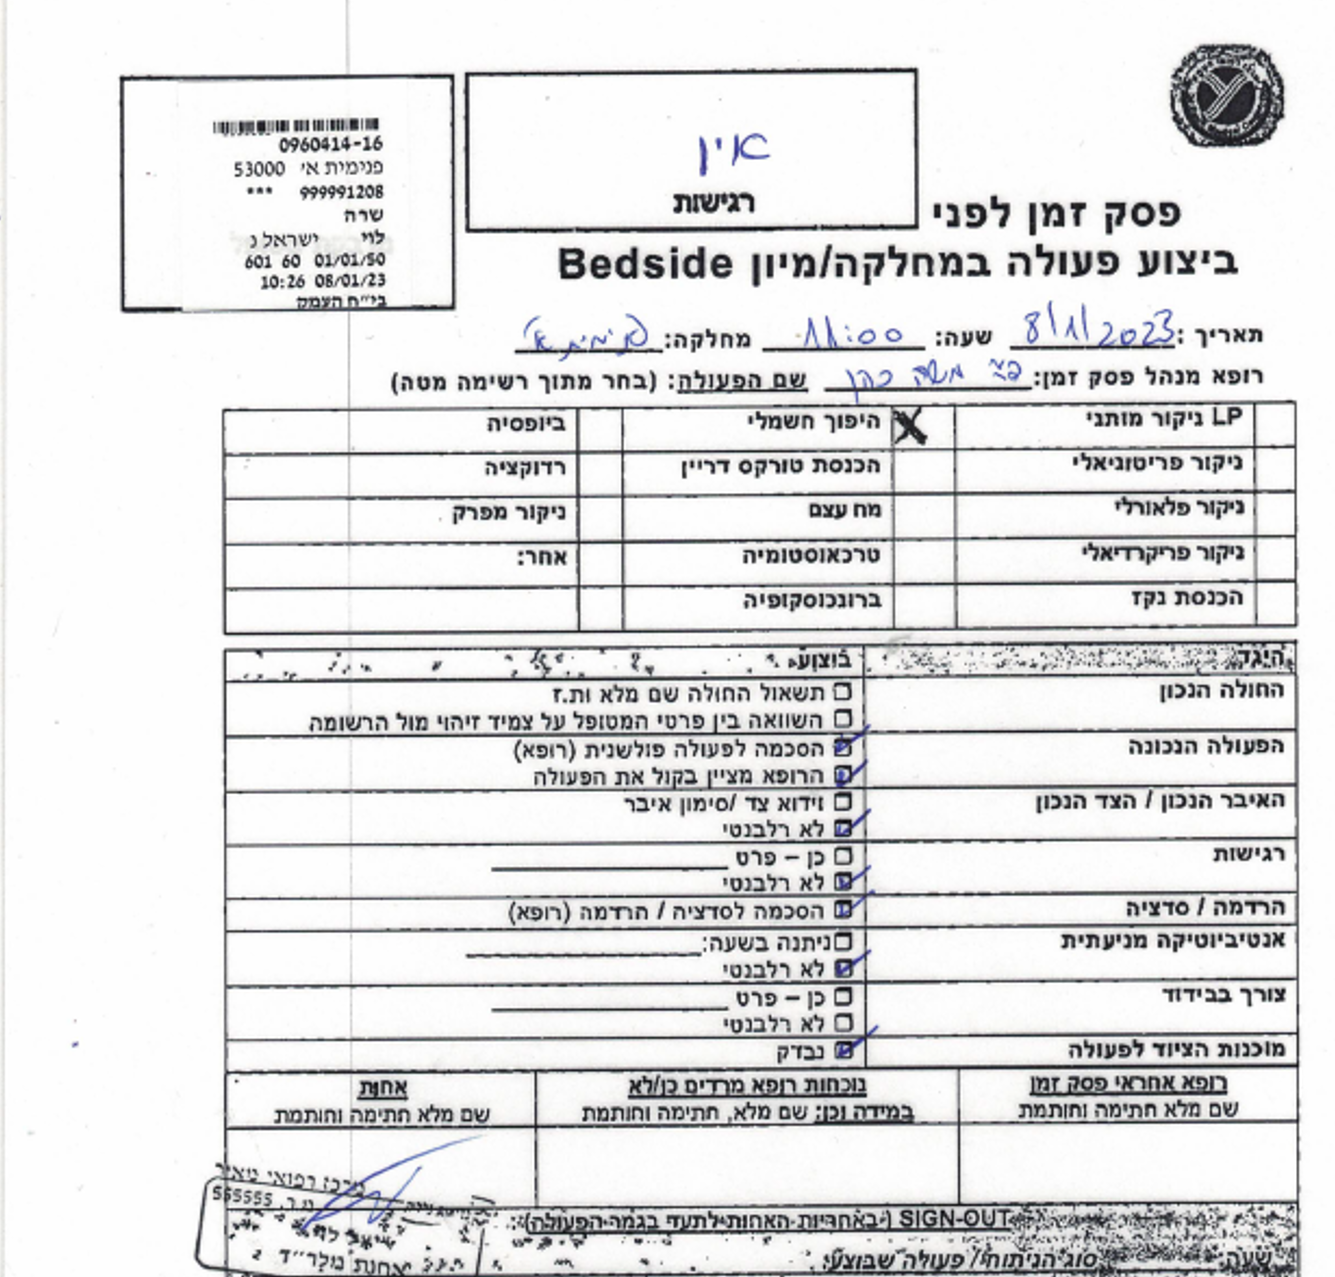 0960414-16
פנימית א' 53000
999991208 ***
שרה
לוי ישראל נ
01/01/50 60 601
08/01/23 10:26
בי"ח העמק
אין
רגישות
פסק זמן לפני
ביצוע פעולה במחלקה/מיון Bedside
תאריך: 8/1/2023 שעה: 11:00 מחלקה: פנימית א'
רופא מנהל פסק זמן: משה כהן שם הפעולה: (בחר מתוך רשימה מטה)
LP ניקור מותני X היפוך חשמלי ביופסיה
ניקור פריטוניאלי הכנסת טורקס דריין רדוקציה
ניקור פלאורלי מח עצם ניקור מפרק
ניקור פריקרדיאלי טרכאוסטומיה אחר:
הכנסת נקז ברונכוסקופיה
היגד בוצע
החולה הנכון ☐ תשאול החולה שם מלא ות.ז
☐ השוואה בין פרטי המטופל על צמיד זיהוי מול הרשומה
הפעולה הנכונה ☑ הסכמה לפעולה פולשנית (רופא)
☑ הרופא מציין בקול את הפעולה
האיבר הנכון / הצד הנכון ☐ וידוא צד /סימון איבר
☑ לא רלבנטי
רגישות ☐ כן – פרט
☑ לא רלבנטי
הרדמה / סדציה ☑ הסכמה לסדציה / הרדמה (רופא)
אנטיביוטיקה מניעתית ☐ ניתנה בשעה:
☑ לא רלבנטי
צורך בבידוד ☐ כן – פרט
☐ לא רלבנטי
מוכנות הציוד לפעולה ☑ נבדק
רופא אחראי פסק זמן נוכחות רופא מרדים כן/לא אחות
שם מלא חתימה וחותמת במידה וכן: שם מלא, חתימה וחותמת שם מלא חתימה וחותמת
מרכז רפואי מאיר
מ.ר. 555555
אחות מלר"ד
SIGN-OUT (באחריות האחות לתעד בגמר הפעולה):
שעה: סוג הניתוח/ פעולה שבוצע: